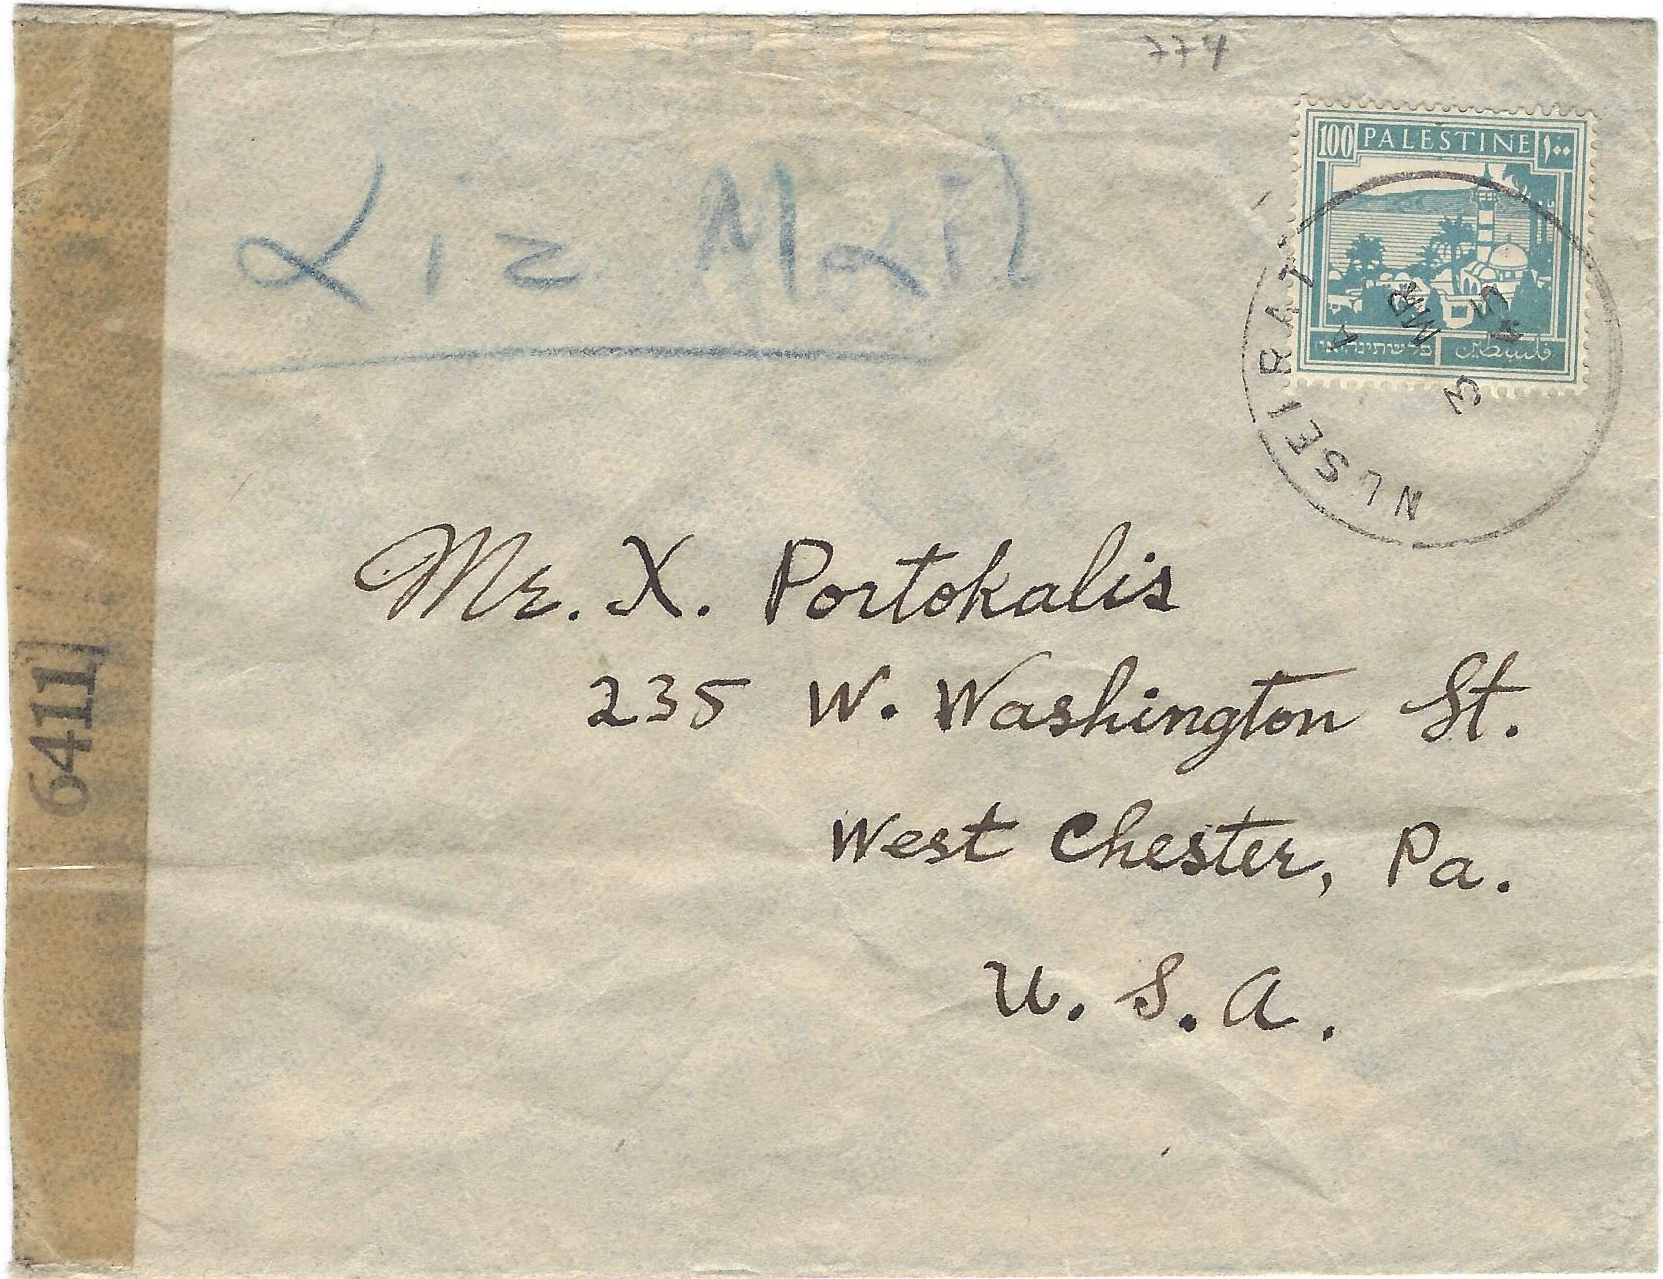 774
Air Mail
100 PALESTINE ١٠٠
פלשתינה (א״י) فلسطين
NUSEIRAT
A
3 MR
Mr. X. Portokalis
235 W. Washington St.
West Chester, Pa.
U. S. A.
6411